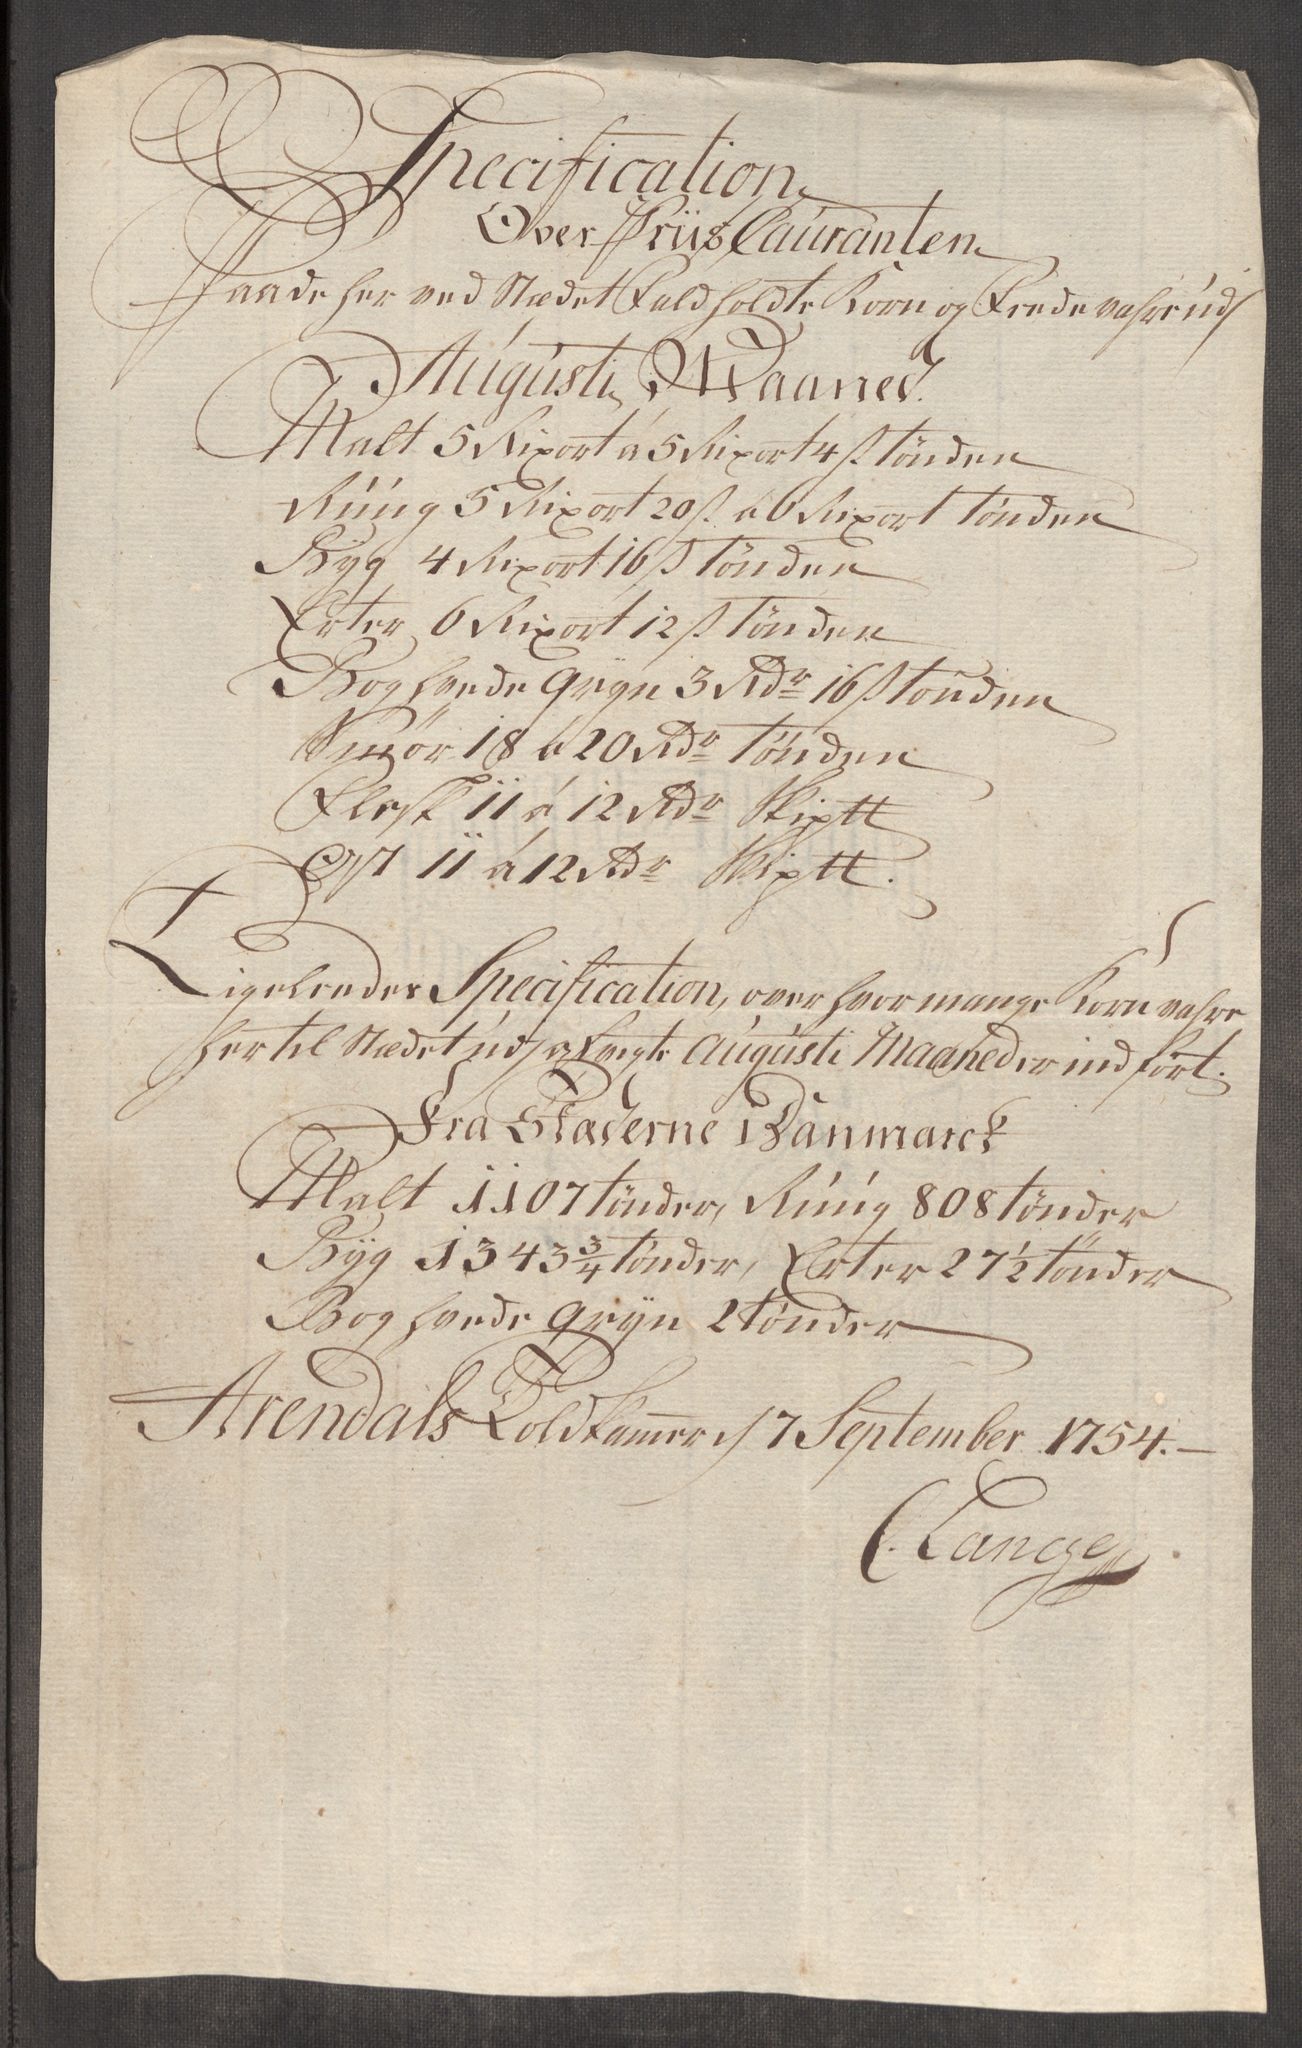 Specification
Over Priis Couranten
Paa de her ved Stædet Fald holdte Korn og Fede vahre udj
Augusti Maaned.
Malt 5 Rixort á 5 Rixort 4 s. tönden
Rúúg 5 Rixort 20 s. á 6 Rixort tönden
Byg 4 Rixort 16 s tönden
Erter 6 Rixort 12 s tönden
Boghvede gryn 3 Rdr 16 s tönden
Smör 18 á 20 Rdr tönden
Flesk 11 á 12 Rdr Skiptt
Ost 11 á 12 Rdr Skiptt.
Ligeleedes Specification, over hvor mange Korn vahre
her til Stædet udj a fvigte Augústi Maaned er ind fört.
Fra Stæderne i Danmarck
Malt 1107 tönder, Rúúg 808 tönder
Byg 1343 3/4 tönder, Erter 27 1/2 tönder
Boghvede gryn 2 tönder
Arendals Told Kammer d 7 September 1754.
C. Lange